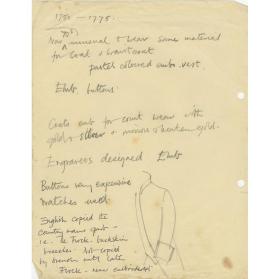 1750 — 1775.
70s
Now unusual to wear same material
for coat & waistcoat
pastel coloured emb. vest.
Emb. buttons
Coats emb for court wear with
gold & silver &
Engravers designed Embs
Buttons very expensive
watches used
English copied the
country mans
i.e. le Frock. buckskin
breeches. Not copied
by french until late
Frock - never embroidered